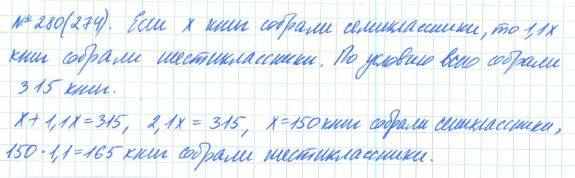 №280(274). Если x книг собрали семиклассники, то 1,1x
книг собрали шестиклассники. По условию всего собрали
315 книг.
x+1,1x=315, 2,1x=315, x=150 книг собрали семиклассники,
150·1,1=165 книг собрали шестиклассники.